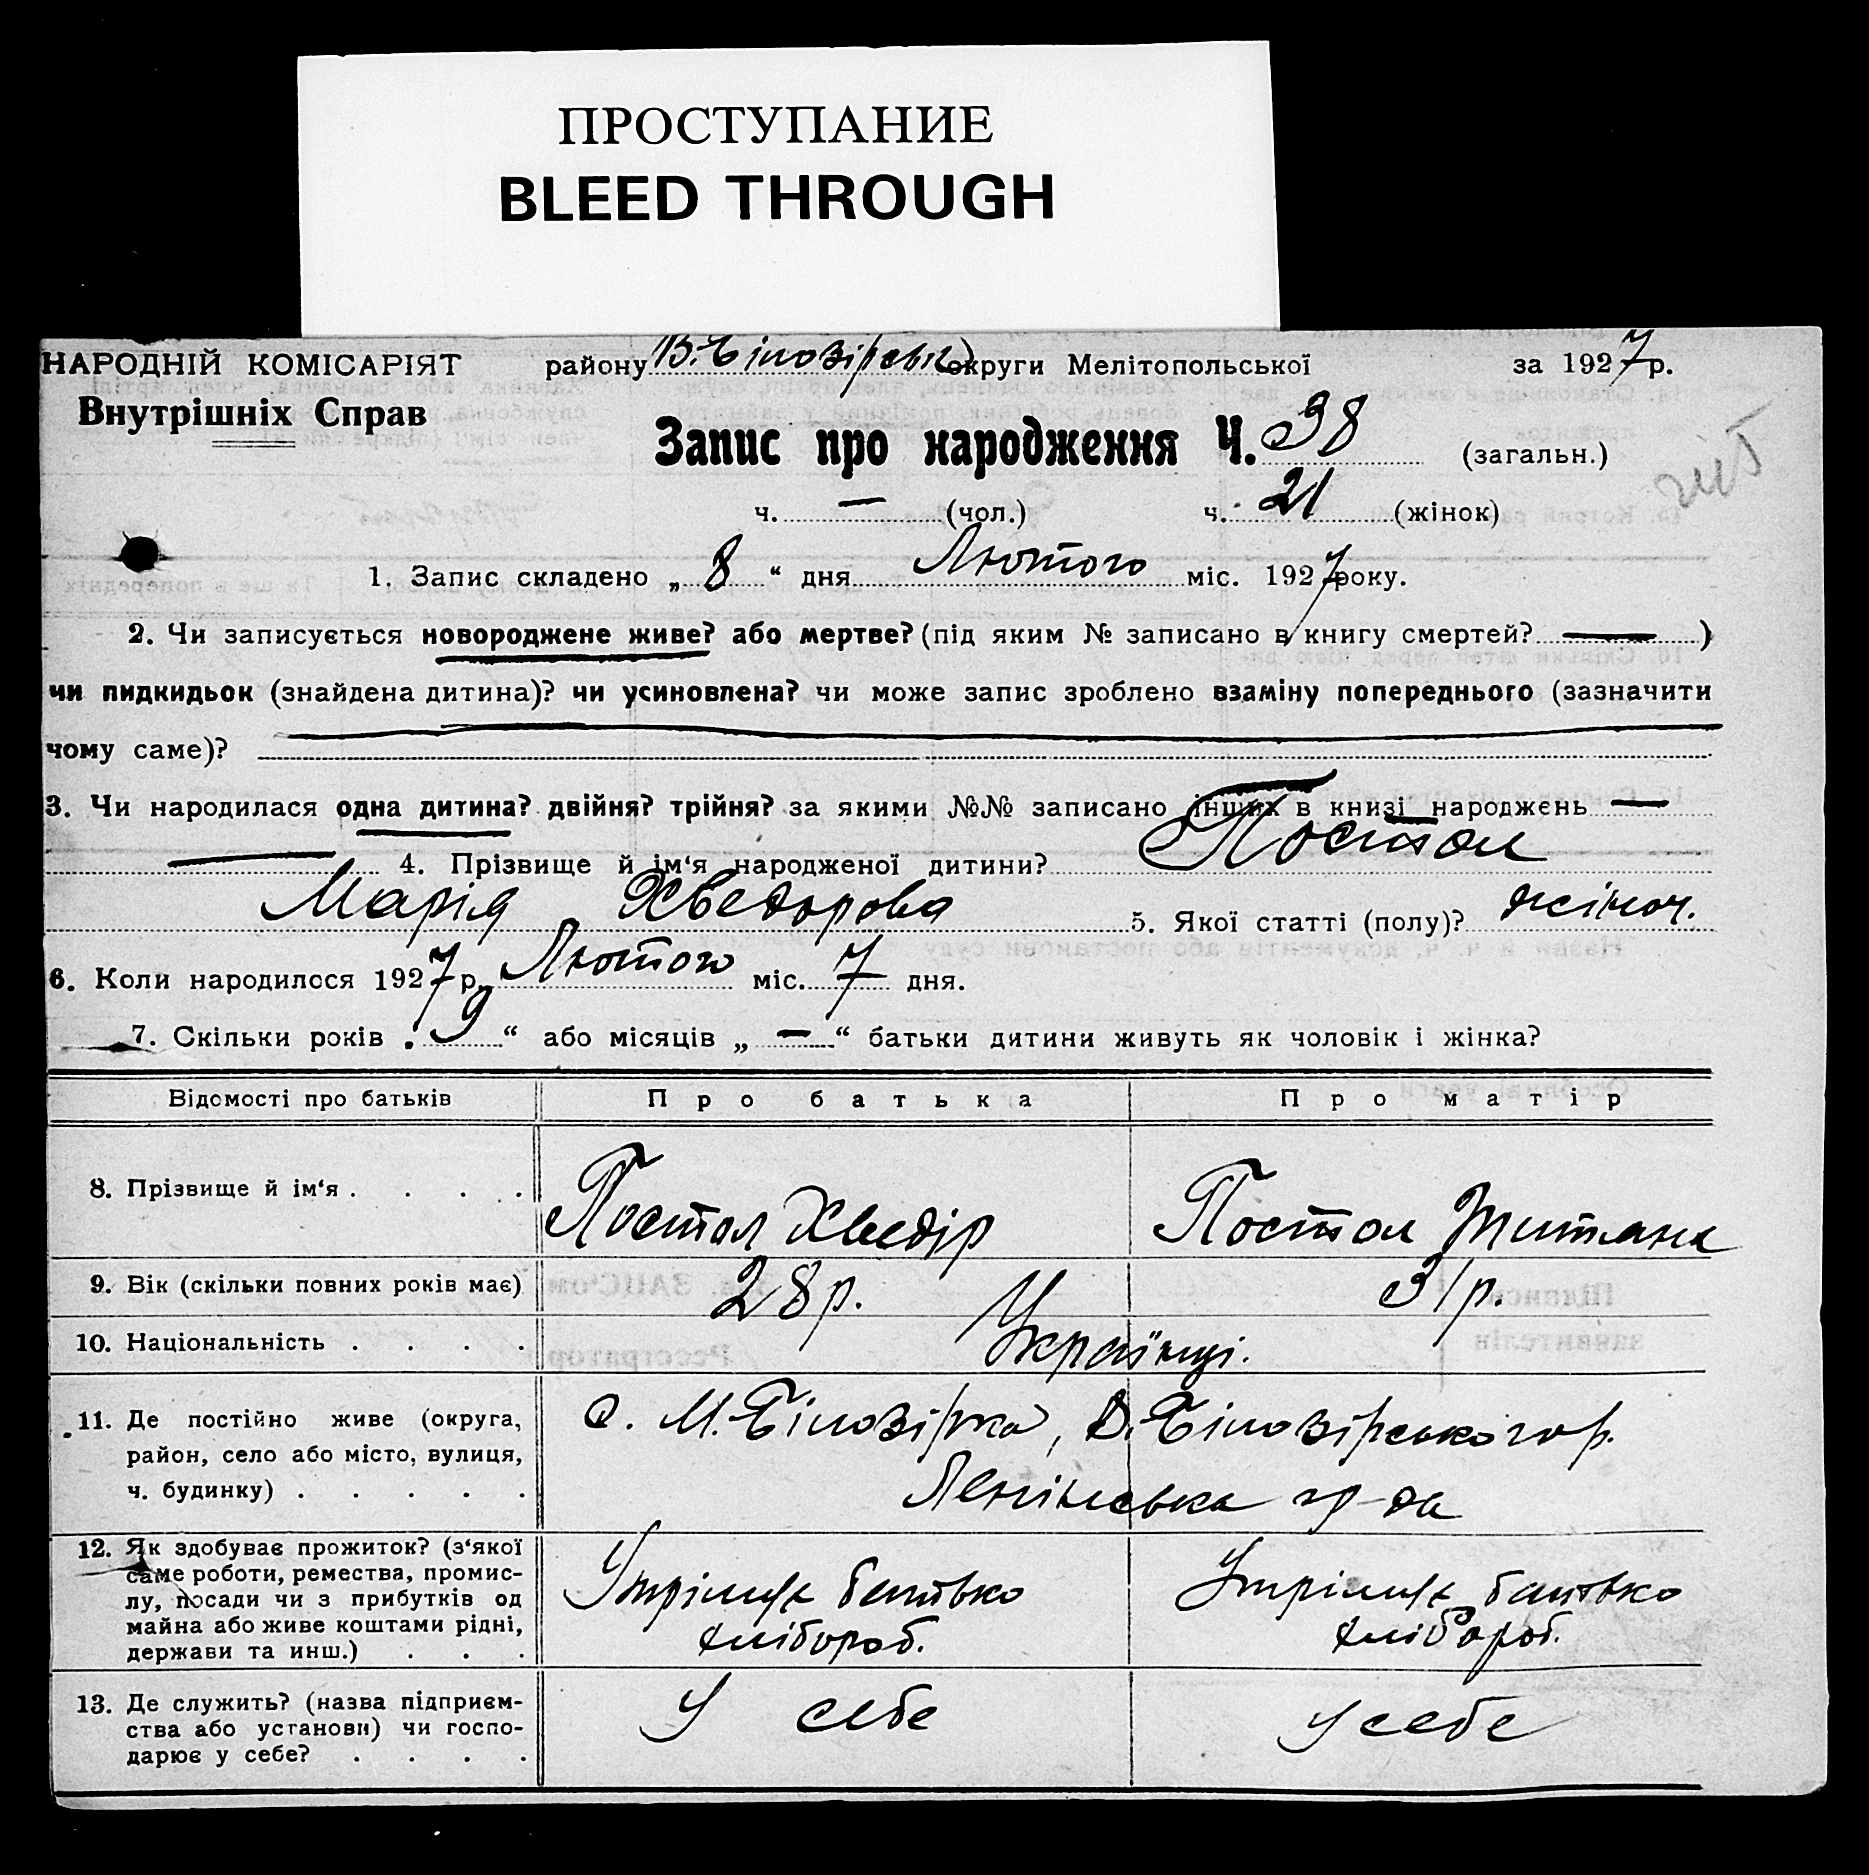 ПРОСТУПАНИЕ
BLEED THROUGH
НАРОДНІЙ КОМІСАРІЯТ району В.-Білозірськ округи Мелітопольської за 1927 р.
Внутрішніх Справ
Запис про народження Ч. 38 (загальн.)
ч. — (чол.) ч. 21 (жінок)
1. Запис складено „ 8 “ дня Лютого міс. 1927 року.
2. Чи записується новороджене живе? або мертве? (під яким № записано в книгу смертей? — )
чи пидкидьок (знайдена дитина)? чи усиновлена? чи може запис зроблено взаміну попереднього (зазначити
чому саме)?
3. Чи народилася одна дитина? двійня? трійня? за якими №№ записано інших в книзі народжень —
— 4. Прізвище й ім‘я народженої дитини? Постол
Марія Хведорова 5. Якої статті (полу)? жіноч.
6. Коли народилося 1927 р. Лютого міс. 7 дня.
7. Скільки років „ 9 “ або місяців „ — “ батьки дитини живуть як чоловік і жінка?
Відомості про батьків Про батька Про матір
8. Прізвище й ім‘я . . . . Постол Хведір Постол Титяна
9. Вік (скільки повних років має) 28 р. 31 р.
10. Національність . . . . Українці.
11. Де постійно живе (округа, с. М.-Білозірка, В.-Білозірського р.
район, село або місто, вулиця,
ч. будинку) . . . . . Ленінська гр-да
12. Як здобуває прожиток? (з‘якої
саме роботи, ремества, промис-
лу, посади чи з прибутків од батько батько
майна або живе коштами рідні, хлібороб. хлібороб.
держави та инш.) . . .
13. Де служить? (назва підприєм- У себе У себе
ства або установи) чи госпо-
дарює у себе? . . . .